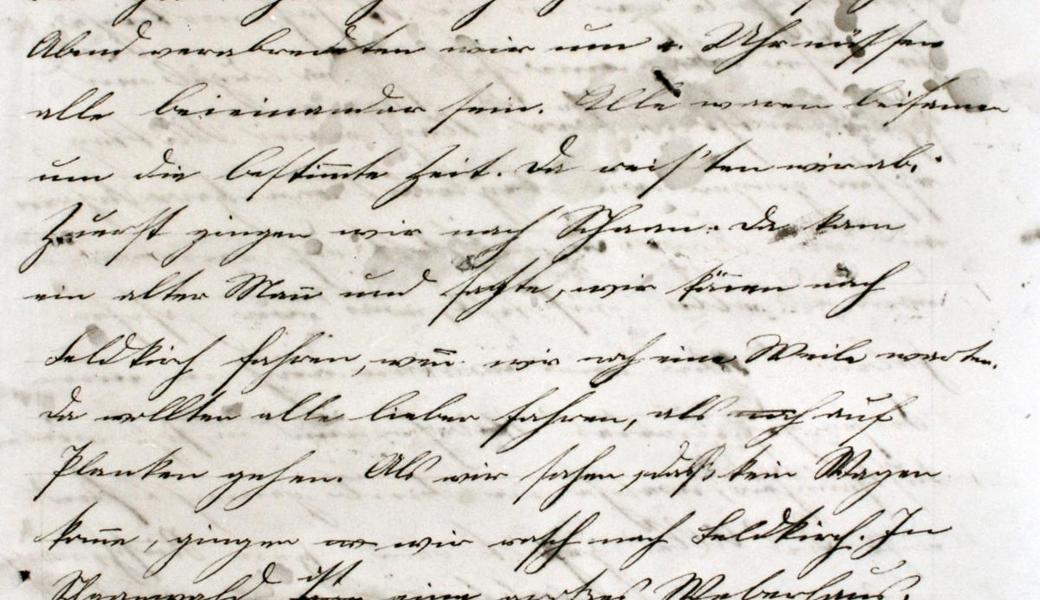 Abend verabredeten wir um Uhr müssen
alle beieinander sein. Alle waren beisamen
um die bestimte Zeit. Da reis'ten wir ab.
Zuerst gingen wir nach Schaan. Da kam
ein alter Man und sagte, wir könen nach
Feldkirch fahren, wen wir noch eine Weile warten.
Da wollten alle lieber fahren, als noch auf
Planken gehen. Als wir sahen, daß kein Wagen
kome, gingen wir rasch nach Feldkirch. In
Schaanwald ist eine großes Weberhaus.